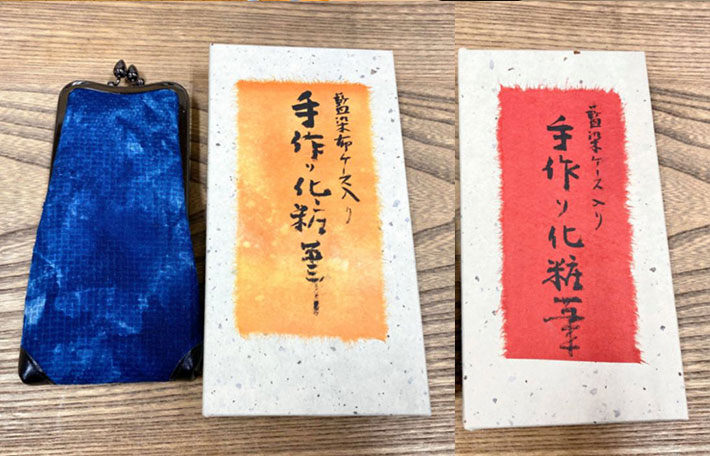 藍染布ケース入り
手作り化粧筆
藍染ケース入り
手作り化粧筆